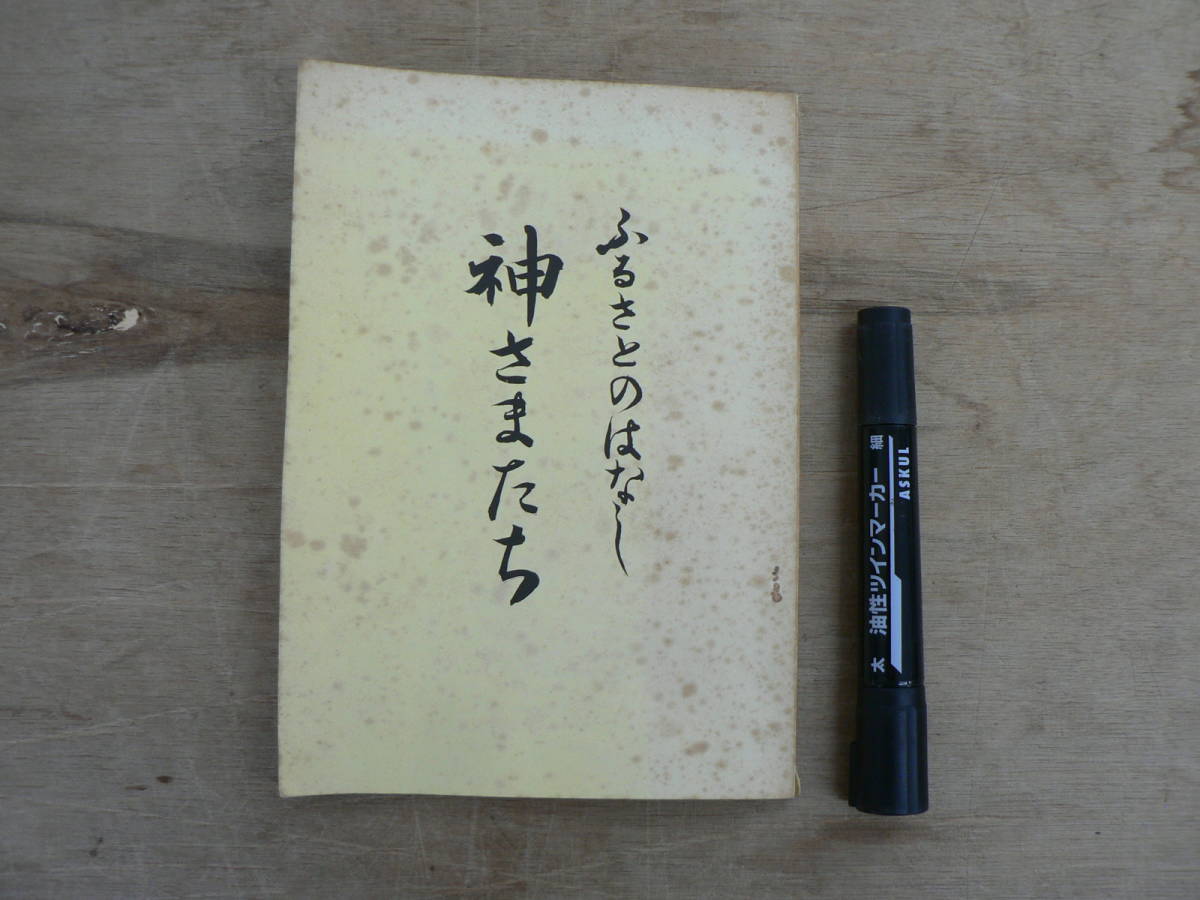 ふるさとのはなし
神さまたち
太 油性ツインマーカー 細
ASKUL